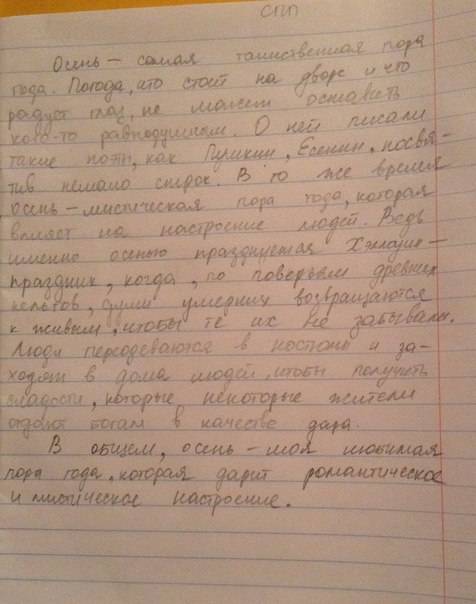 СПП
Осень – самая таинственная пора
года. Погода, что стоит на дворе и что
радует глаз, не может оставить
кого-то равнодушным. О ней писали
такие поэты, как Пушкин, Есенин, посвя-
тив немало строк. В то же время
осень – мистическая пора года, которая
влияет на настроение людей. Ведь
именно осенью празднуется Хэллоуин –
праздник, когда, по поверьям древних
кельтов, души умерших возвращаются
к живым, чтобы те их не забывали.
Люди переодеваются в костюмы и за-
ходят в дома людей, чтобы получить
сладости, которые некоторые жители
отдают богам в качестве дара.
В общем, осень – моя любимая
пора года, которая дарит романтическое
и мистическое настроение.